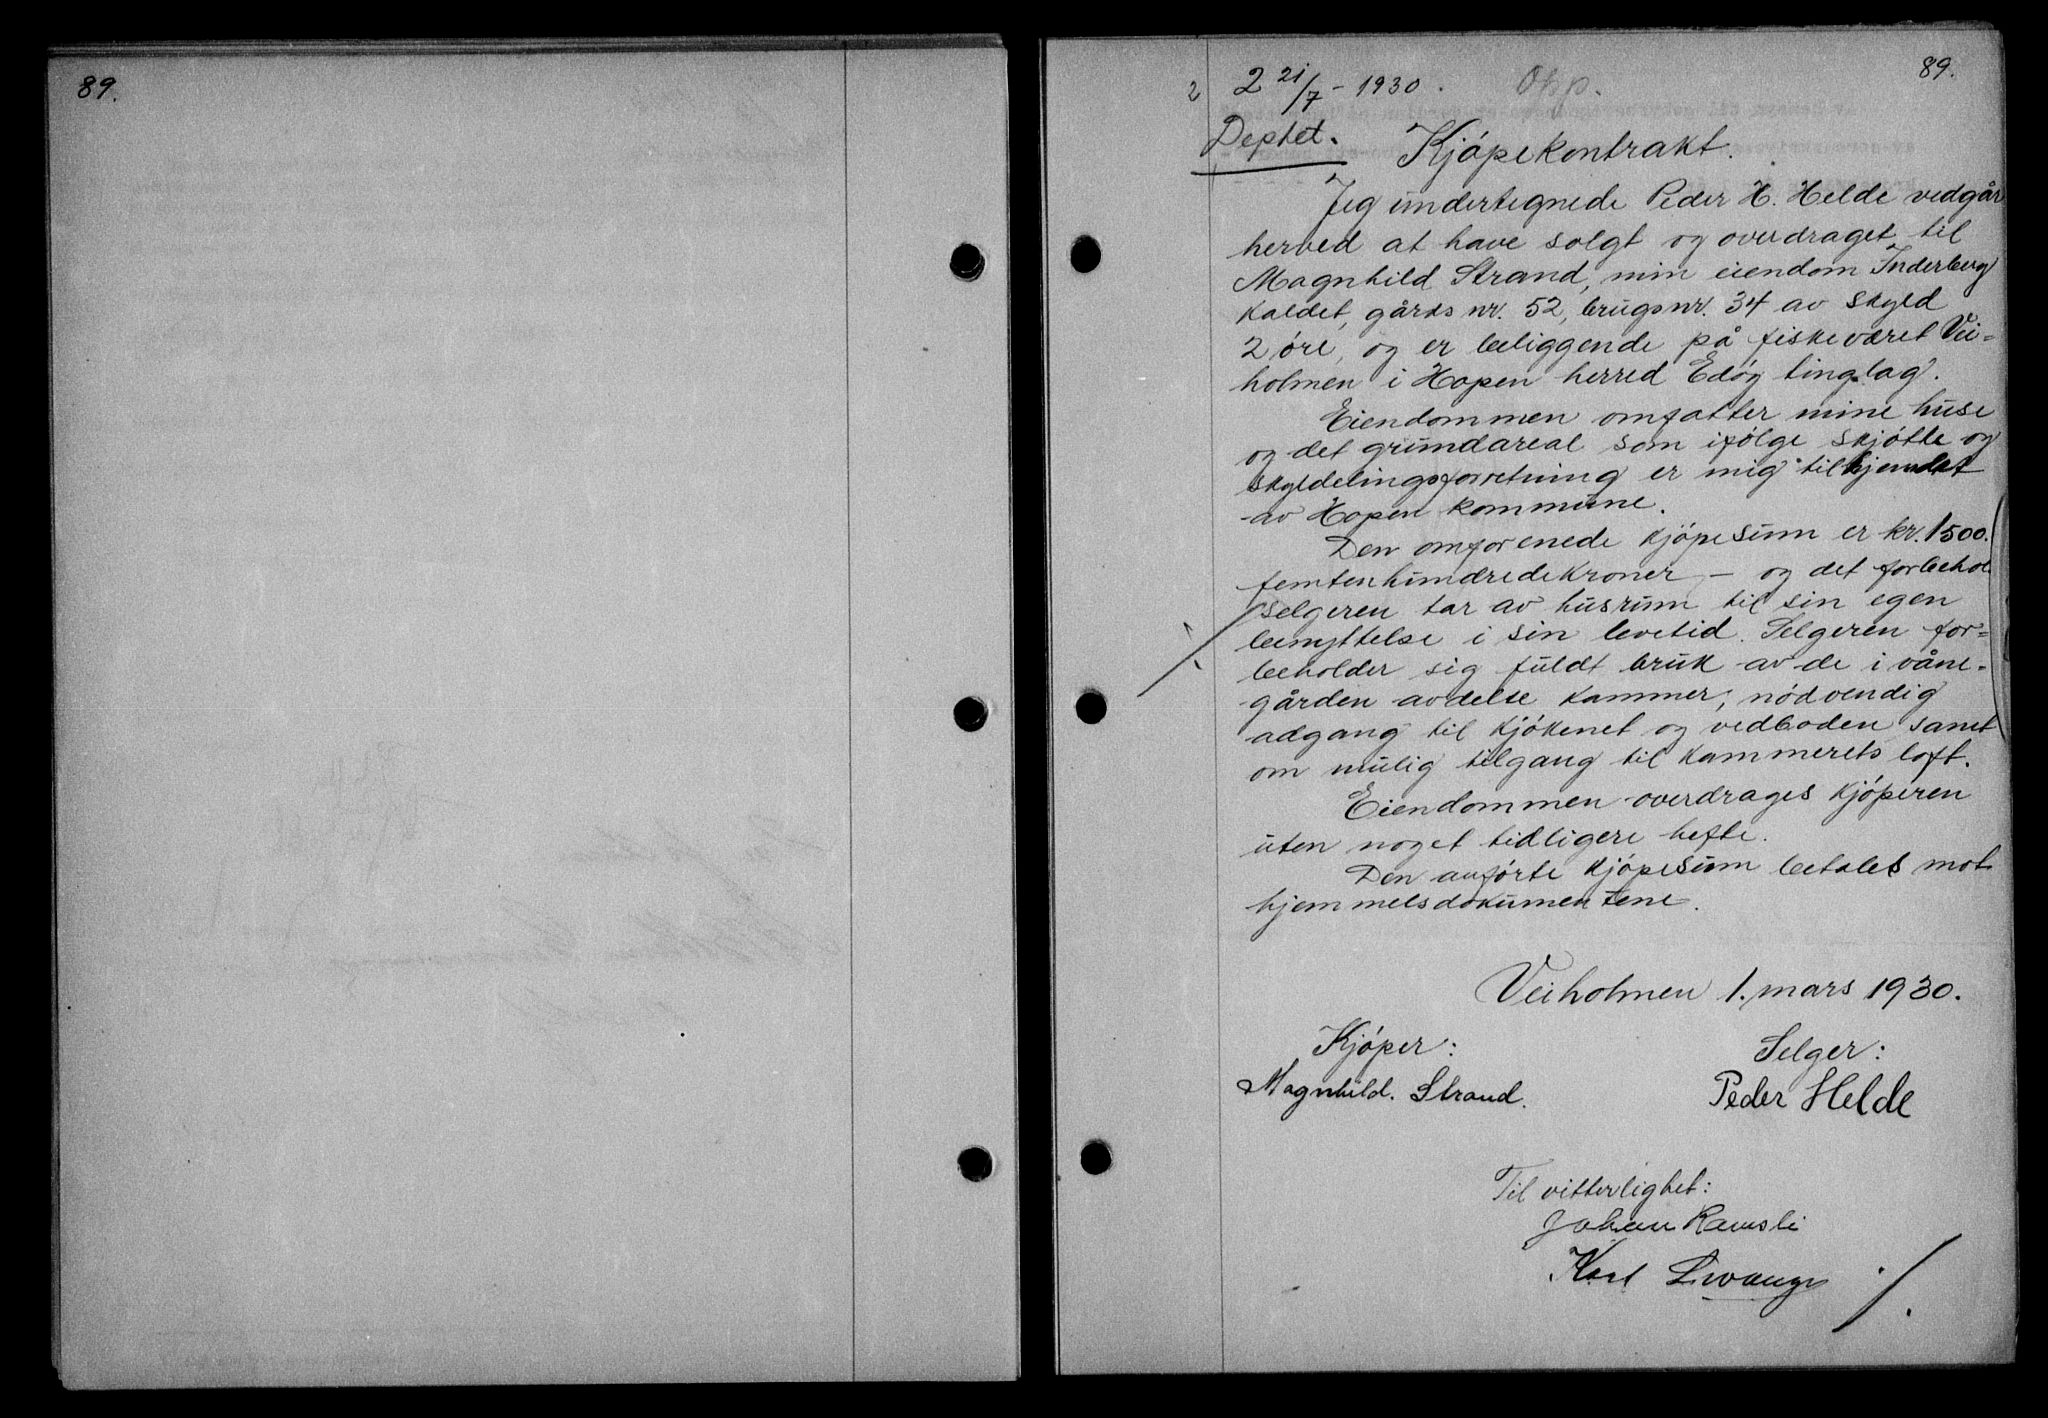 89.
89.
2 2 21/7 - 1930.
Deptet.
Kjöpekontrakt.
Jeg undertegnede Peder H. Helde vedgår
herved at have solgt og overdraget til
Magnhild Strand, min eiendom Inderberg
kaldet, gårds nr. 52, brugsnr. 34 av skyld
2 øre, og er beliggende på fiskeværet Vei=
holmen i Hopen herred Edøy tinglag.
Eiendommen omfatter mine huse
og det grundareal som ifølge skjøtte og
skyldelingsforretning er mig tilhjemlet
av Hopen kommune.
Den omforenede kjöpesum er kr. 1500.
femtenhundredekroner — og det forbehol
selgeren tar av husrum til sin egen
benyttelse i sin levetid. Selgeren for=
beholder sig fuldt bruk av de i våne-
gården avdelte kammer, nödvendig
adgang til kjökenet og vedboden samt
om mulig tilgang til kammerets loft.
Eiendommen overdrages kjöperen
uten noget tidligere hefte.
Den anførte kjöpesum betales mot
hjemmelsdokumentene.
Veiholmen 1. mars 1930.
Kjöper:
Selger:
Magnhild. Strand.
Peder Helde
Til vitterlighet:
Johan Ramsli
Karl